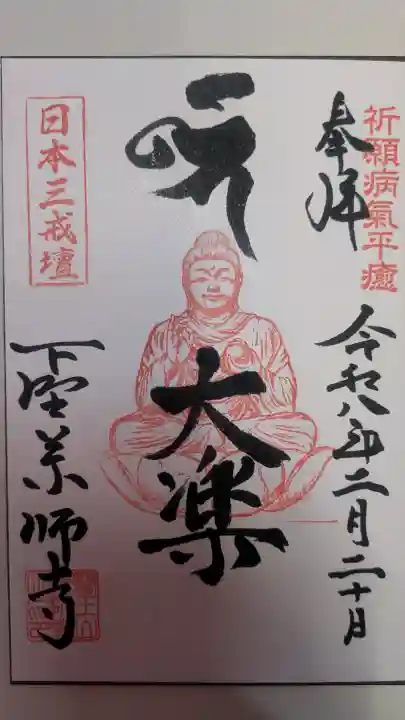 祈願病氣平癒
奉拜
令和八年二月二十日
大楽
日本三戒壇
下野薬師寺